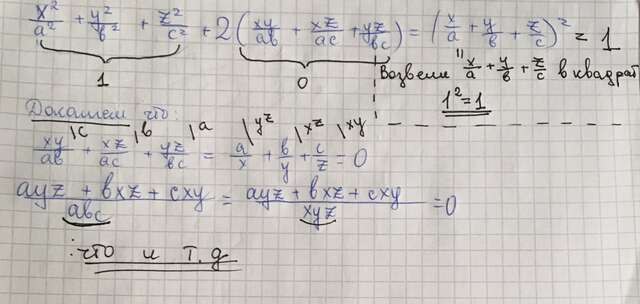 x²/a² + y²/b² + z²/c² + 2(xy/ab + xz/ac + yz/bc) = (x/a + y/b + z/c)² = 1
1 0 Возвели x/a + y/b + z/c в квадрат
1² = 1
Докажем что:
\c \b \a \yz \xz \xy
xy/ab + xz/ac + yz/bc = a/x + b/y + c/z = 0
ayz + bxz + cxy/abc = ayz + bxz + cxy/xyz = 0
: что и т.д